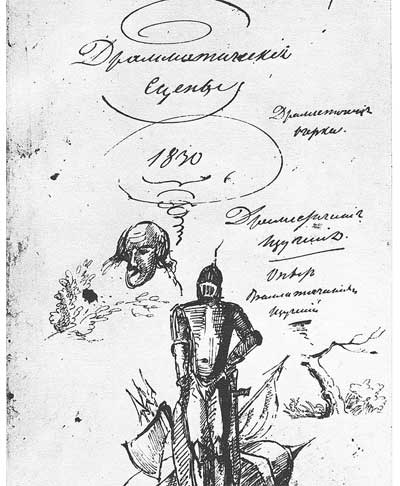 Драмматическія
Сцены
1830
Драматическіе
очерки.
Драматическія
изученія.
Опыт
драматических
изучений